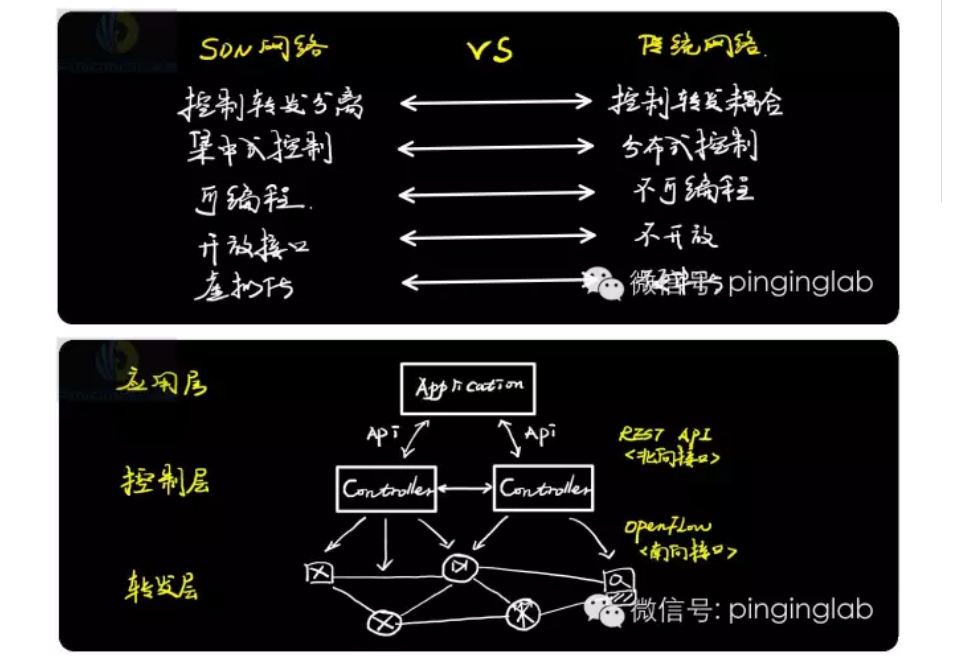 SDN网络 VS 传统网络.
控制转发分离 控制转发耦合
集中式控制 分布式控制
可编程. 不可编程
开放接口 不开放
虚拟
微信号: pinginglab
应用层 Application
Api Api REST API
<北向接口>
控制层 Controller Controller
OpenFlow
<南向接口>
转发层
微信号: pinginglab